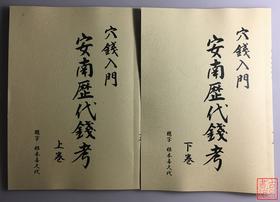 穴錢入門
安南歴代錢考
上巻
題字 根本喜久代
穴錢入門
安南歴代錢考
下巻
題字 根本喜久代